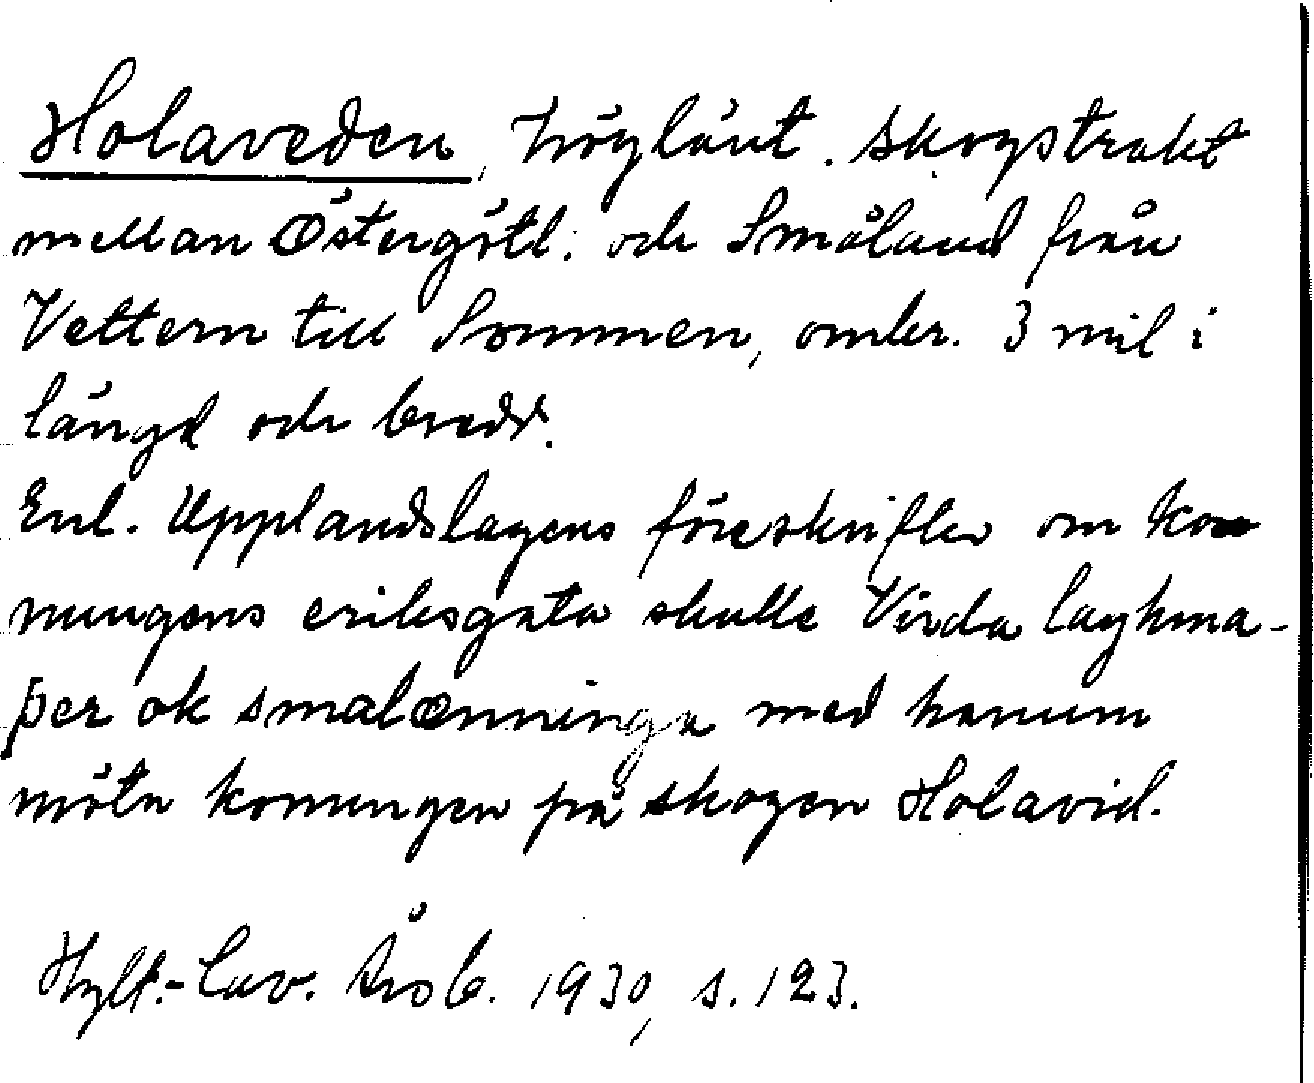 Holaveden, höglänt. skogstrakt
mellan Östergötl. och Småland från
Vettern till Sommen, omkr. 3 mil i
längd och bredd.
Enl. Upplandslagens föreskrifter om ko
nungens eriksgata skulle Virda laghma-
þer ok smalænninga med hanum
möta konungen på skogen Holavid.
Hylt.-Cav. Årsb. 1930, s. 123.